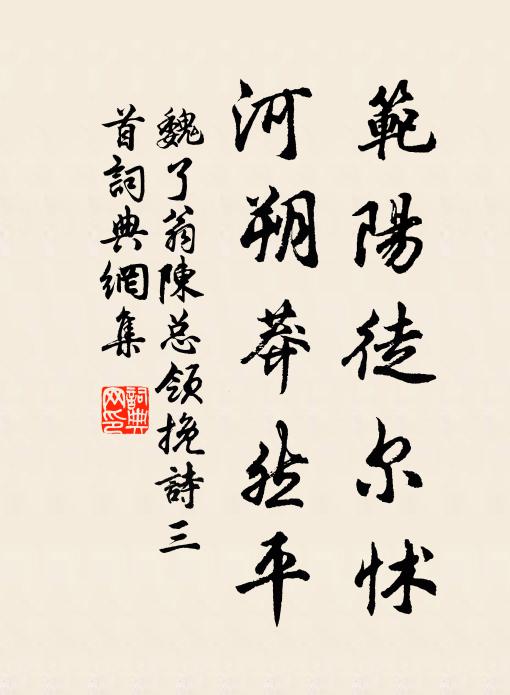 範陽徒尔怵
河朔莽然平
魏了翁陳总领挽詩三
首詞典網集
詞典网印